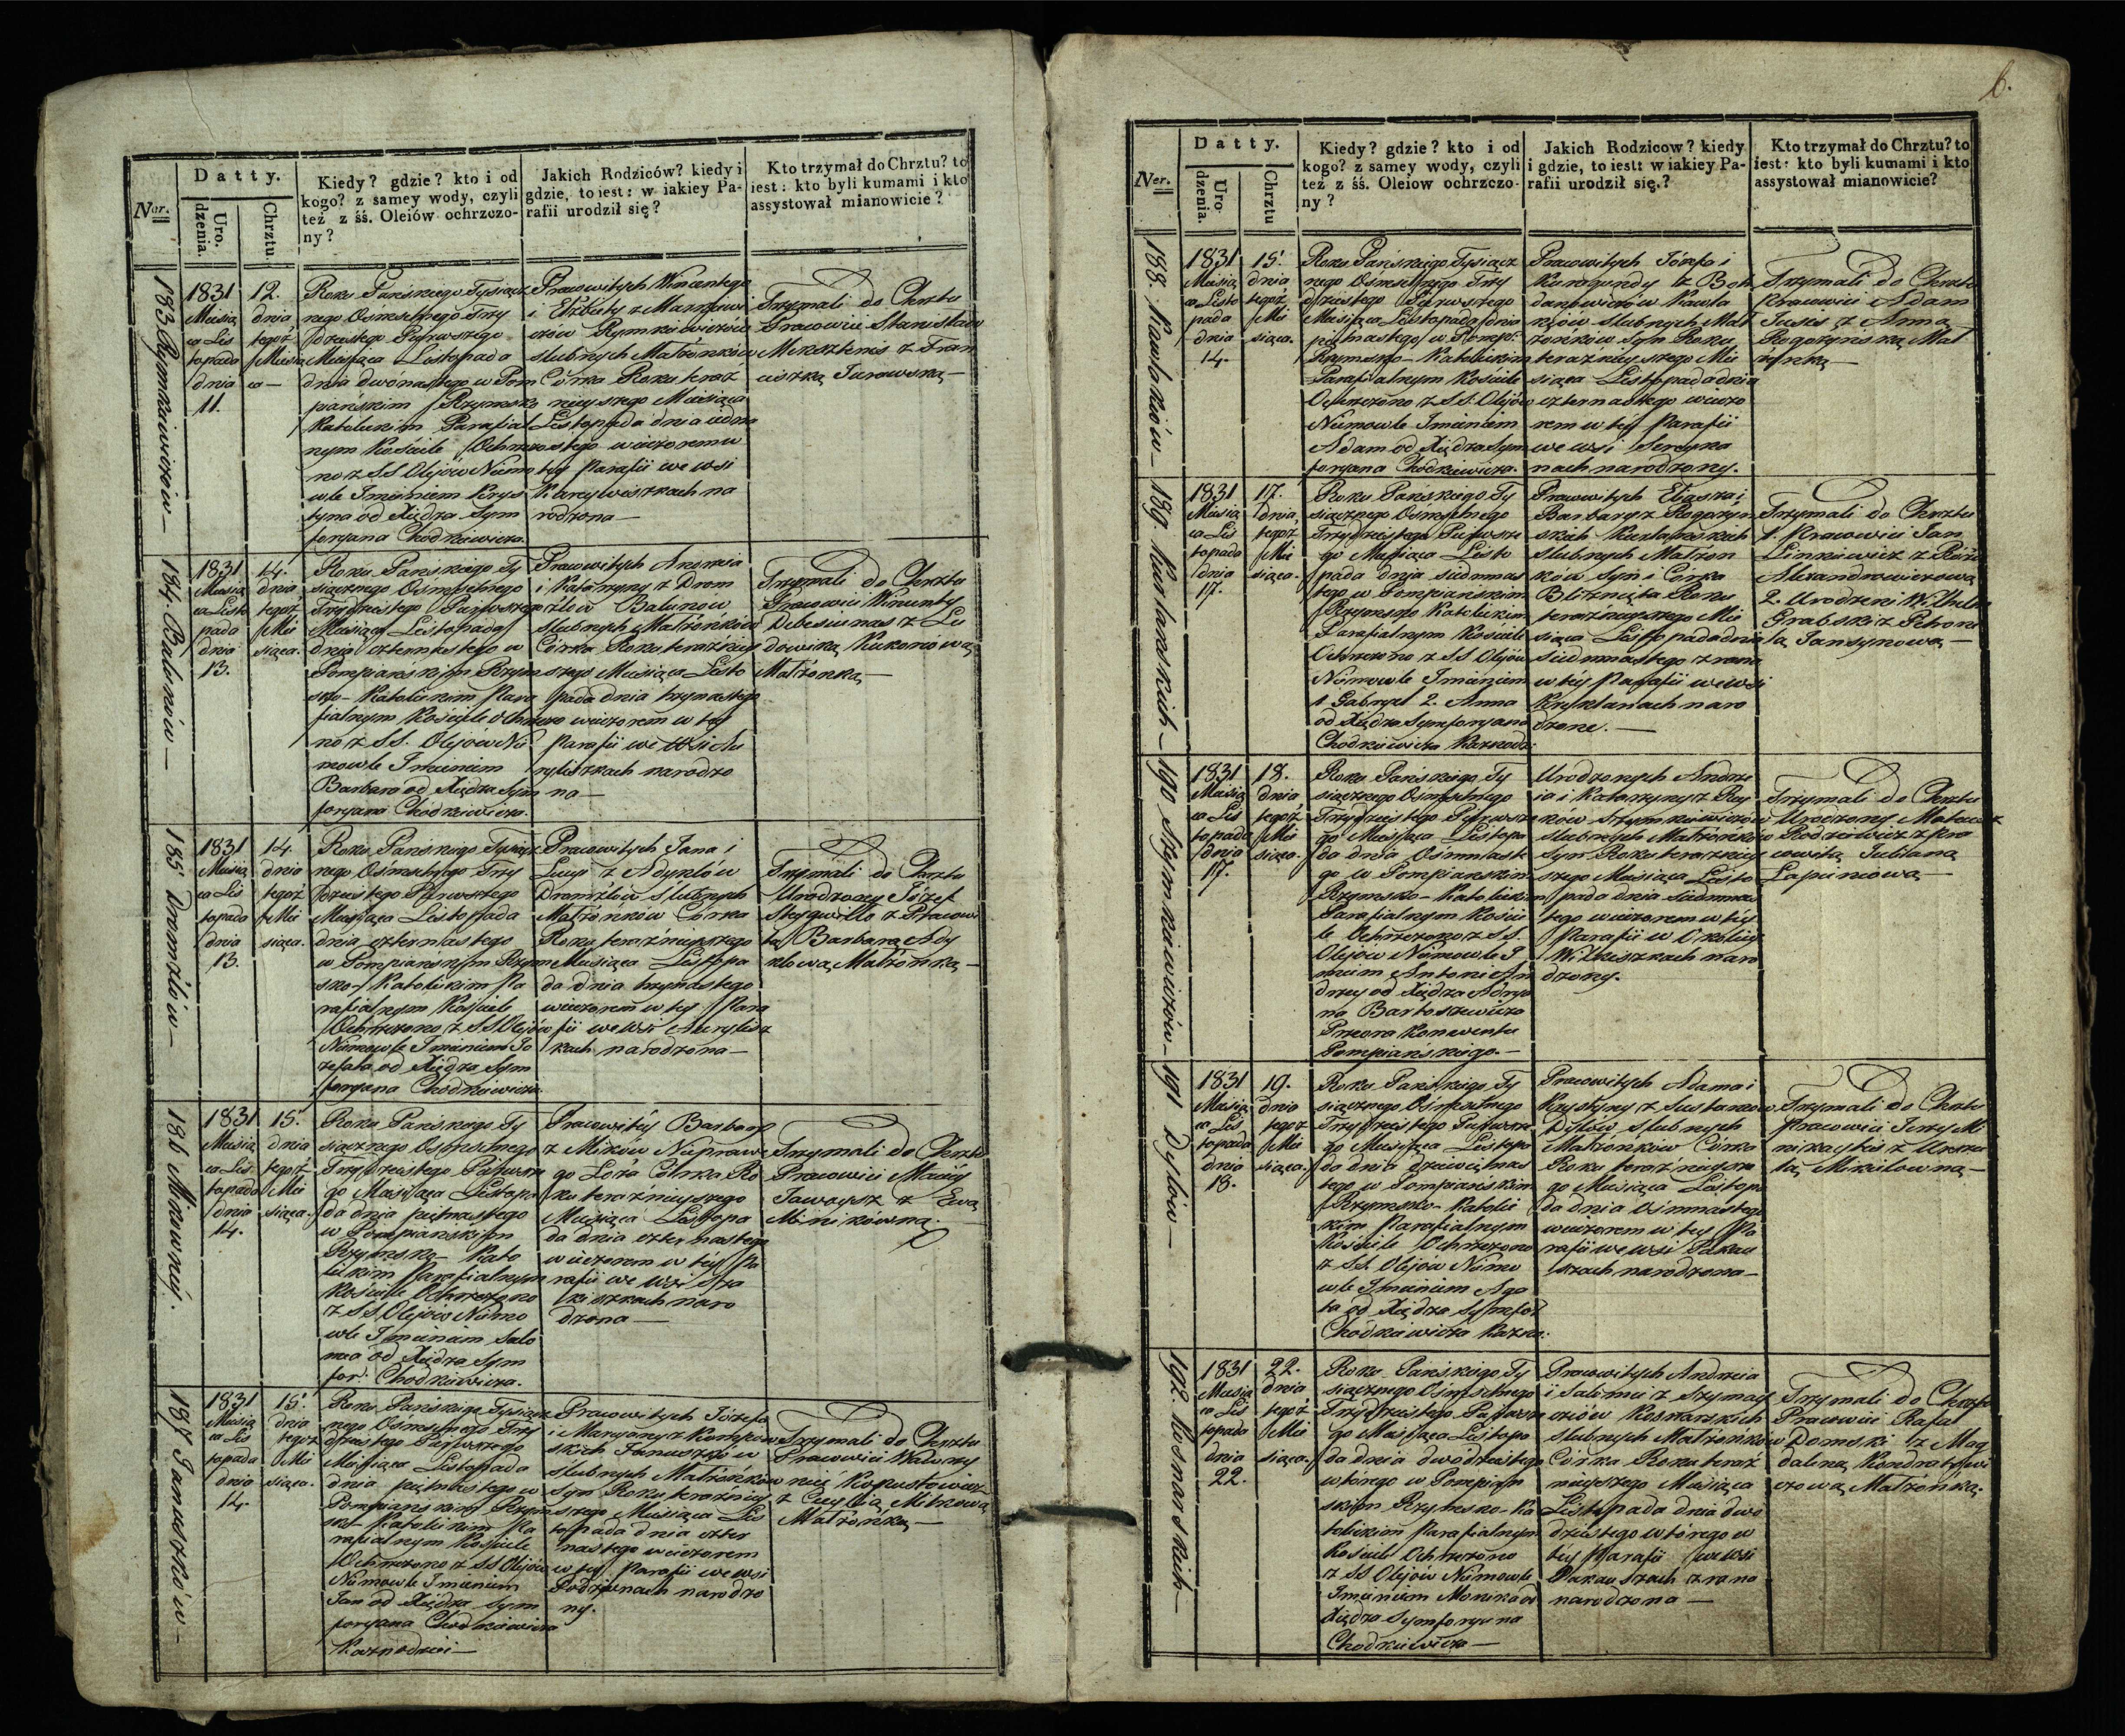 Ner.
Datty.
Uro.
dzenia.
Chrztu
Kiedy? gdzie? kto i od
kogo? z samey wody, czyli
też z śś. Oleiów ochrzczo-
ny?
Jakich Rodziców? kiedy i
gdzie, to iest: w iakiey Pa-
rafii urodził się?
Kto trzymał do Chrztu? to
iest: kto byli kumami i kto
assystował mianowicie?
183 Rymkiewiczów—
1831
Miesią
ca Lis
topada
dnia
11.
12.
dnia
tegoż
Miesią
ca—
Roku Pańskiego Tysiącz
nego Osmsetnego Trzy
dziestego Pierwszego
Miesiąca Listopada
dnia dwónastego w Pom
piańskim Rzymsko
Katolickim Parafial
nym Kościele Ochrzczo
no z SS. Olejów Niemo
wle Imieniem Krys
tyna od Xiędza Sym
foryana Chodkiewicza.
Pracowitych Wincentego
i Elżbiety z
czów Rymkiewiczów
slubnych Małżonków
Córka Roku teraz
nieyszego Miesiąca
Listopada dnia iedna
stego wieczorem w
tey Parafii we wsi
na
rodzona—
Trzymali do Chrztu
Pracowici Stanisław
z Fran
ciszką Jurowską—
184. Balunów—
1831
Miesią
ca Listo
pada
dnia
13.
14.
dnia
tegoż
Mie
siąca.
Roku Pańskiego Ty
siącznego Osmsetnego
Trzydziestego Pierwszego
Miesiąca Listopada
dnia czternastego w
Pompiańskim Rzym
sko-Katolickim Para
fialnym Kościele Ochrzczo
no z SS. Olejów Nie
mowle Imieniem
Barbara od Xiędza Sym
foryana Chodkiewicza.
Pracowitych Andrzeia
i Katarzyny z Drom
żlów Balunów
Slubnych Małżonków
Córka Roku teraźniey
szego Miesiąca Listo
pada dnia trzynastego
wieczorem w tey
Parafii we Wsi Au
ryliszkach narodzo
na—
Trzymali do Chrztu
Pracowici Wincenty
Debesiunas z Lu
dowiką Kukoniową
Małżonką—
185 Dromżlów—
1831
Miesią
ca Lis
topada
dnia
13.
14.
dnia
tegoż
Mie
siąca.
Roku Pańskiego Tysiącz
nego Osmsetnego Trzy
dziestego Pierwszego
Miesiąca Listopada
dnia czternastego
w Pompiańskim Rzym
sko-Katolickim Pa
rafialnym Kościele
Ochrzczono z SS Olejów
Niemowle Imieniem Jo
zefata od Xiędza Sym
foryana Chodkiewicza.
Pracowitych Jana i
Łucyi z Adyklów
Dromżlów Slubnych
Małżonków Córka
Roku teraźnieyszego
Miesiąca Listopa
da dnia trzynastego
wieczorem w tey Para
fii we Wsi Aurylisz
kach narodzona—
Trzymali do Chrztu
Urodzony Józef
Stegwiłło z Pracowi
tą Barbarą Ady
klową Małżonką—
186 Mikowney.
1831
Miesią
ca Lis
topada
dnia
14.
15.
dnia
tegoż
Mie
siąca.
Roku Pańskiego Ty
siącznego Osmsetnego
Trzydziestego Pierwsze
go Miesiąca Listopa
da dnia piętnastego
w Pompiańskim
Rzymsko-Kato
lickim Parafialnym
Kościele Ochrzczono
z SS Olejów Niemo
wle Imieniem Salo
mea od Xiędza Sym
for: Chodkiewicza.
Pracowitey Barbary
z Mików Niepraw
go Łoża Córka Ro
ku teraźnieyszego
Miesiąca Listopa
da dnia czternastego
wieczorem w tey Pa
rafii we Wsi
naro
dzona—
Trzymali do Chrztu
Pracowici Maciey
z Ewą
Minikówną.
187 Januszków—
1831
Miesią
ca Lis
topada
dnia
14.
15.
dnia
tegoż
Mie
siąca.
Roku Pańskiego Tysiącz
nego Osmsetnego Trzy
dziestego Pierwszego
Miesiąca Listopada
dnia piętnastego w
Pompiańskim Rzym
sko-Katolickim Pa
rafialnym Kościele
Ochrzczono z SS Olejów
Niemowle Imieniem
Jan od Xiędza Sym
foryana Chodkiewicza
Kaznodziei—
Pracowitych Józefa
i Maryanny z
skich Januszków
Slubnych Małżonków
Syn Roku teraźniey
szego Miesiąca Lis
topada dnia czter
nastego wieczorem
w tey Parafii we wsi
narodzo
ny.
Trzymali do Chrztu
Pracowici Walerzy
z Cecylią Mikową
Małżonką—
6.
Ner.
Datty.
Uro-
dzenia.
Chrztu
Kiedy? gdzie? kto i od
kogo? z samey wody, czyli
też z śś. Oleiow ochrzczo-
ny?
Jakich Rodzicow? kiedy
i gdzie, to iest: w iakiey Pa-
rafii urodził się.?
Kto trzymał do Chrztu? to
iest: kto byli kumami i kto
assystował mianowicie?
188. Kawlakiów—
1831
Miesią
ca Listo
pada
dnia
14.
15.
dnia
tegoż
Mie
siąca.
Roku Pańskiego Tysiącz
nego Osmsetnego Trzy
dziestego Pierwszego
Miesiąca Listopada dnia
piętnastego w Pomp:
Rzymsko-Katolickim
Parafialnym Kościele
Ochrzczono z SS. Olejów
Niemowle Imieniem
Adam od Xiędza Sym
foryana Chodkiewicza.
Pracowitych Józefa i
Kunegundy z Boh
danowiczów Kawla
kiów slubnych Mał
żonków Syn Roku
teraznieyszego Mie
siąca Listopada dnia
czternastego wieczo
rem w tey Parafii
we wsi
nach narodzony.
Trzymali do Chrztu
Pracowici Adam
z Anną
Rogożynską Mał
żonką—
189 Kurlanskich—
1831
Miesią
ca Lis
topada
dnia
17.
17.
dnia
tegoż
Mie
siąca.
Roku Pańskiego Ty
siącznego Osmsetnego
Trzydziestego Pierwsze
go Miesiąca Listo
pada dnia siedmnas
tego w Pompianskim
Rzymsko Katolickim
Parafialnym Kościele
Ochrzczono z SS Olejów
Niemowle Imieniem
1 Gabryel 2. Anna
od Xiędza Symforyana
Chodkiewicza Kaznodz:
Pracowitych Eliasza i
Barbary z Rogożyn
skich Kurlanskich
Slubnych Małżon
ków Syn i Córka
Bliźnięta Roku
teraźnieyszego Mie
siąca Listopada dnia
siedmnastego z rana
w tey Parafii we wsi
naro
dzone.—
Trzymali do Chrztu
1. Pracowici Jan
Linkiewicz z Różą
Alexandrowiczową
2. Urodzeni Wilhelm
Grabski z Petrone
lą Jansynową—
190 Szymkiewiczów—
1831
Miesią
ca Lis
topada
dnia
17.
18.
dnia
tegoż
Mie
siąca.
Roku Pańskiego Ty
siącznego Osmsetnego
Trzydziestego Pierwsze
go Miesiąca Listopa
da dnia Ośmnaste
go w Pompianskim
Rzymsko-Katolickim
Parafialnym Koście
le Ochrzczono z SS.
Olejów Niemowle I
mieniem Antoni An
drzey od Xiędza Adrya
na Bartoszewicza
Przeora Konwentu
Pompiańskiego.—
Urodzonych Andrze
ia i Katarzyny z Rey
ków Szymkiewiczów
slubnych Małżonków
Syn Roku teraźniey
szego Miesiąca Listo
pada dnia siedmnas
tego wieczorem w tey
Parafii w Okolicy
naro
dzony.
Trzymali do Chrztu
Urodzony Mateusz
Rodziewicz z Pra
cowitą Julianą
Łapiniową—
191 Dylów—
1831
Miesią
ca Lis
topada
dnia
18.
19.
dnia
tegoż
Mie
siąca.
Roku Pańskiego Ty
siącznego Osmsetnego
Trzydziestego Pierwsze
go Miesiąca Listopa
da dnia dziewiętnas
tego w Pompianskim
Rzymsko-Katolic
kim Parafialnym
Kościele Ochrzczono
z SS. Olejów Niemo
wle Imieniem Aga
ta od Xiędza Symfor
Chodkiewicza Kazno:
Pracowitych Adama i
Krystyny z
Dylów slubnych
Małżonków Córka
Roku teraźnieysze
go Miesiąca Listopa
da dnia Ośmnastego
wieczorem w tey Pa
rafii we wsi Pakau
szach narodzona—
Trzymali do Chrztu
Pracowici Jerzy Mi
z Urszu
lą Mikulowną—
192. Kosmarskich—
1831
Miesią
ca Lis
topada
dnia
22.
22.
dnia
tegoż
Mie
siąca.
Roku Pańskiego Ty
siącznego Osmsetnego
Trzydziestego Pierwsze
go Miesiąca Listopa
da dnia dwódziestego
wtórego w Pompian
skim Rzymsko-Ka
tolickim Parafialnym
Kościele Ochrzczono
z SS Olejów Niemowle
Imieniem Monika od
Xiędza Symforyana
Chodkiewicza—
Pracowitych Andrzeia
i Salomei z Szymay
ciów Kosmarskich
slubnych Małżonków
Córka Roku teraź
nieyszego Miesiąca
Listopada dnia dwó
dziestego wtórego w
tey Parafii we Wsi
Pakauszach z rana
narodzona—
Trzymali do Chrztu
Pracowici Rafał
Domski z Mag
daleną Kondratowi
czową Małżonką.